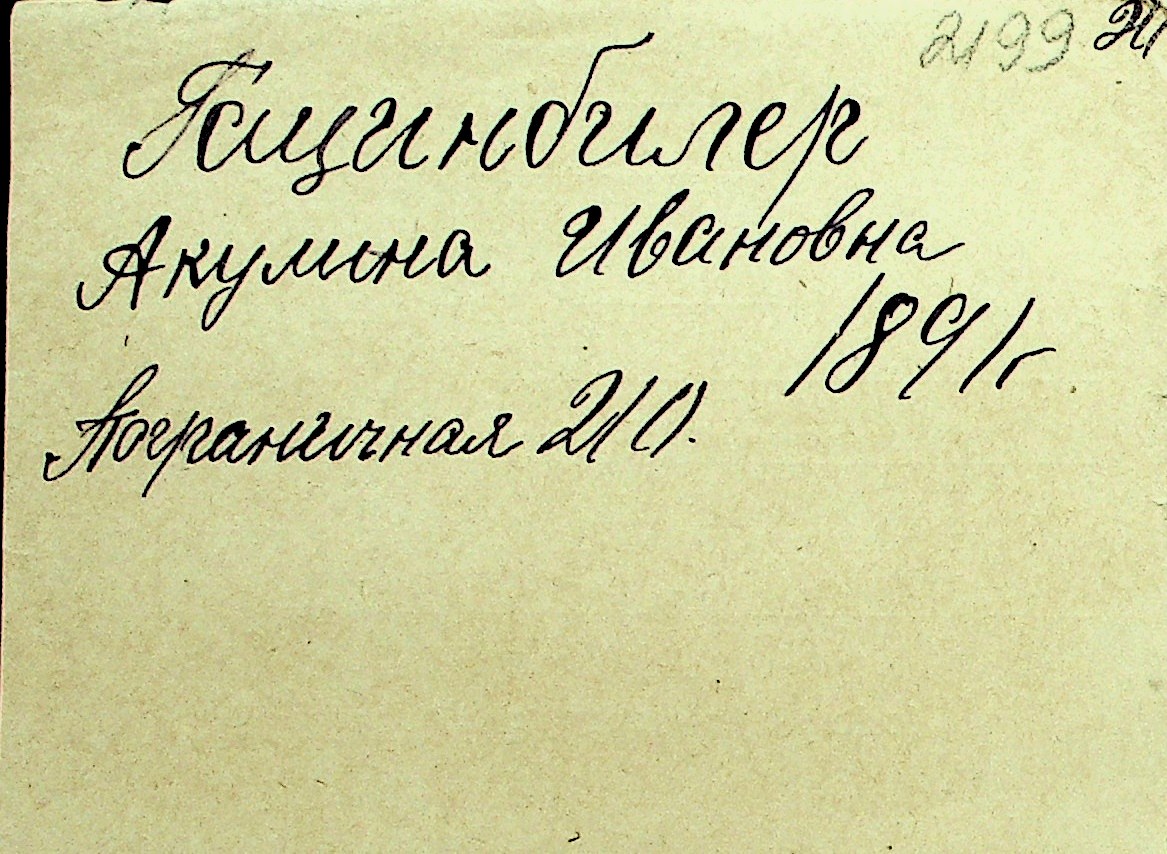 2199
Гацинбилер
Акулина Ивановна
1891г
Пограничная 210.